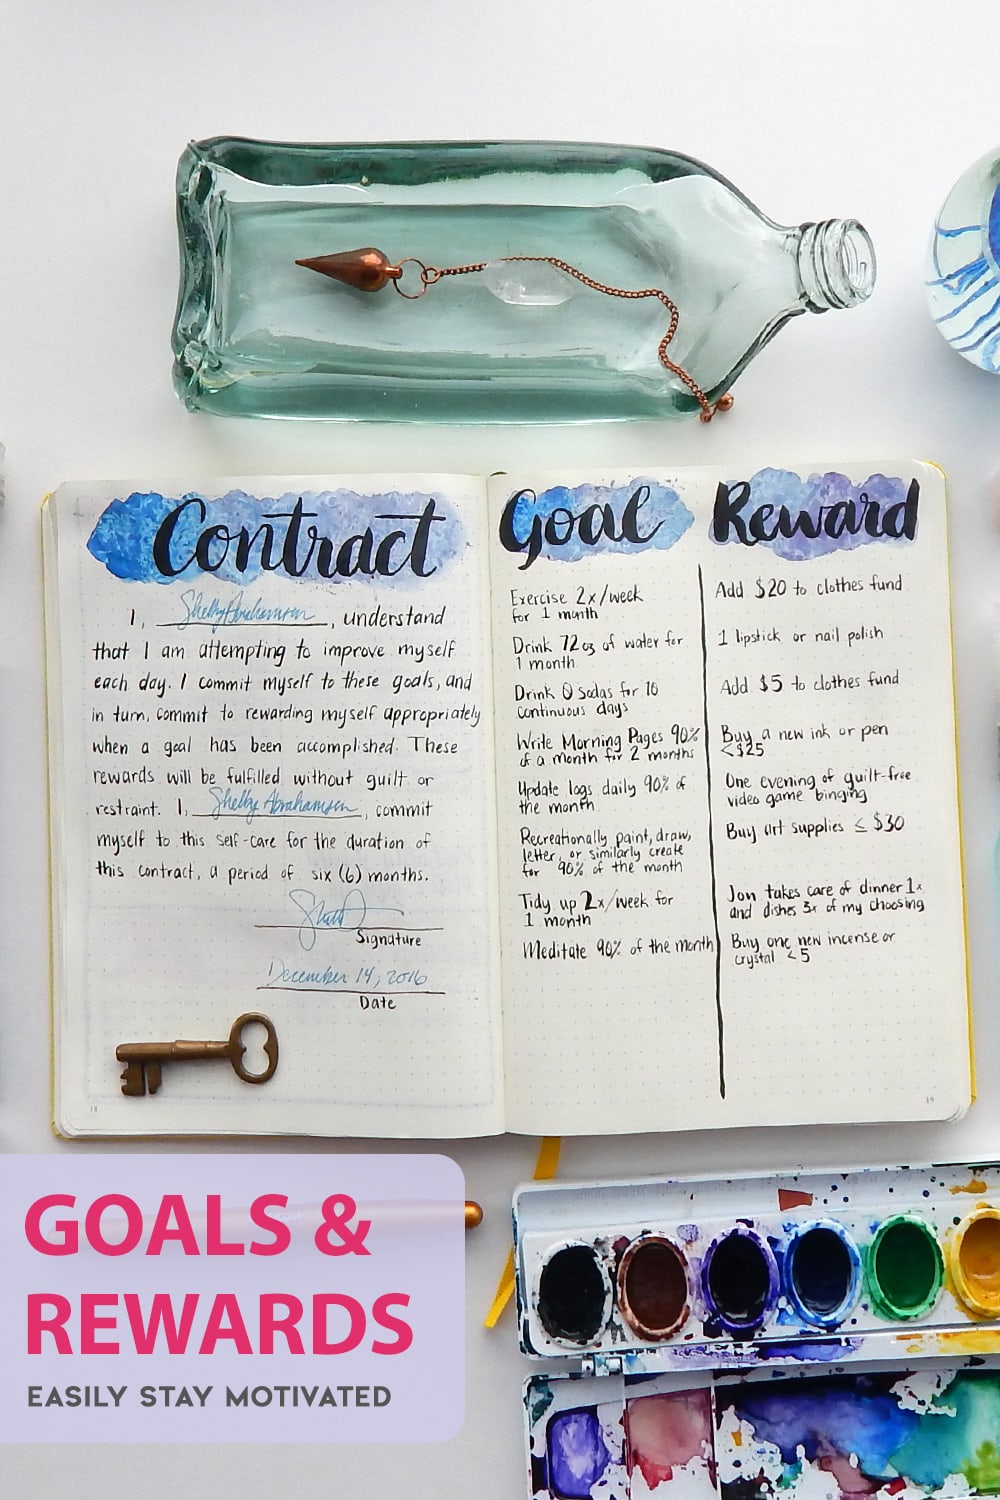 Contract
I, Shelly Abrahamsen, understand
that I am attempting to improve myself
each day. I commit myself to these goals, and
in turn, commit to rewarding myself appropriately
when a goal has been accomplished. These
rewards will be fulfilled without guilt or
restraint. I, Shelby Abrahamsen, commit
myself to this self-care for the duration of
this contract, a period of six (6) months.
Signature
December 14, 2016
Date
18
Goal
Exercise 2x/week
for 1 month
Drink 72oz of water for
1 month
Drink 0 sodas for 10
continuous days
Write Morning Pages 90%
of a month for 2 months
Update logs daily 90% of
the month
Recreationally paint, draw,
letter, or similarly create
for 90% of the month
Tidy up 2x/week for
1 month
Meditate 90% of the month
Reward
Add $20 to clothes fund
1 lipstick or nail polish
Add $5 to clothes fund
Buy a new ink or pen
<$25
One evening of guilt-free
video game binging
Buy art supplies ≤ $30
Jon takes care of dinner 1x
and dishes 3x of my choosing
Buy one new incense or
crystal <5
19
GOALS &
REWARDS
EASILY STAY MOTIVATED